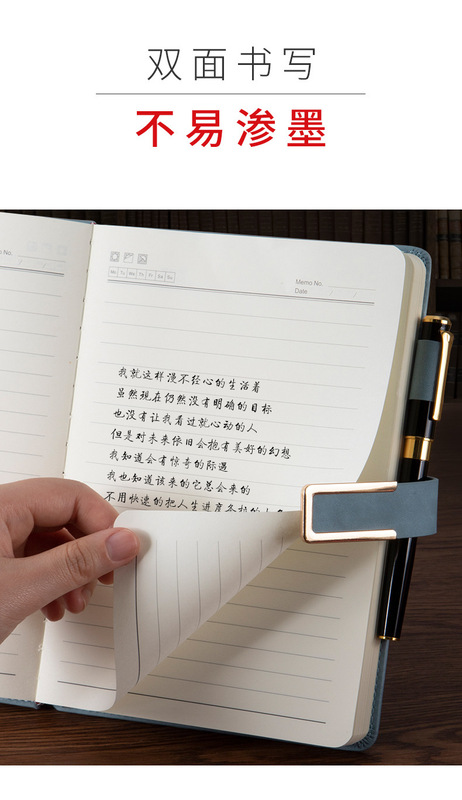 双面书写
不易渗墨
No.
Memo No.
Mo Tu We Th Fr Sa Su
Date
我就这样漫不经心的生活着
虽然现在仍然没有明确的目标
也没有让我看过就心动的人
但是对未来依旧会抱有美好的幻想
我知道会有惊奇的际遇
我也知道该来的它总会来的
不用快速的把人生进度